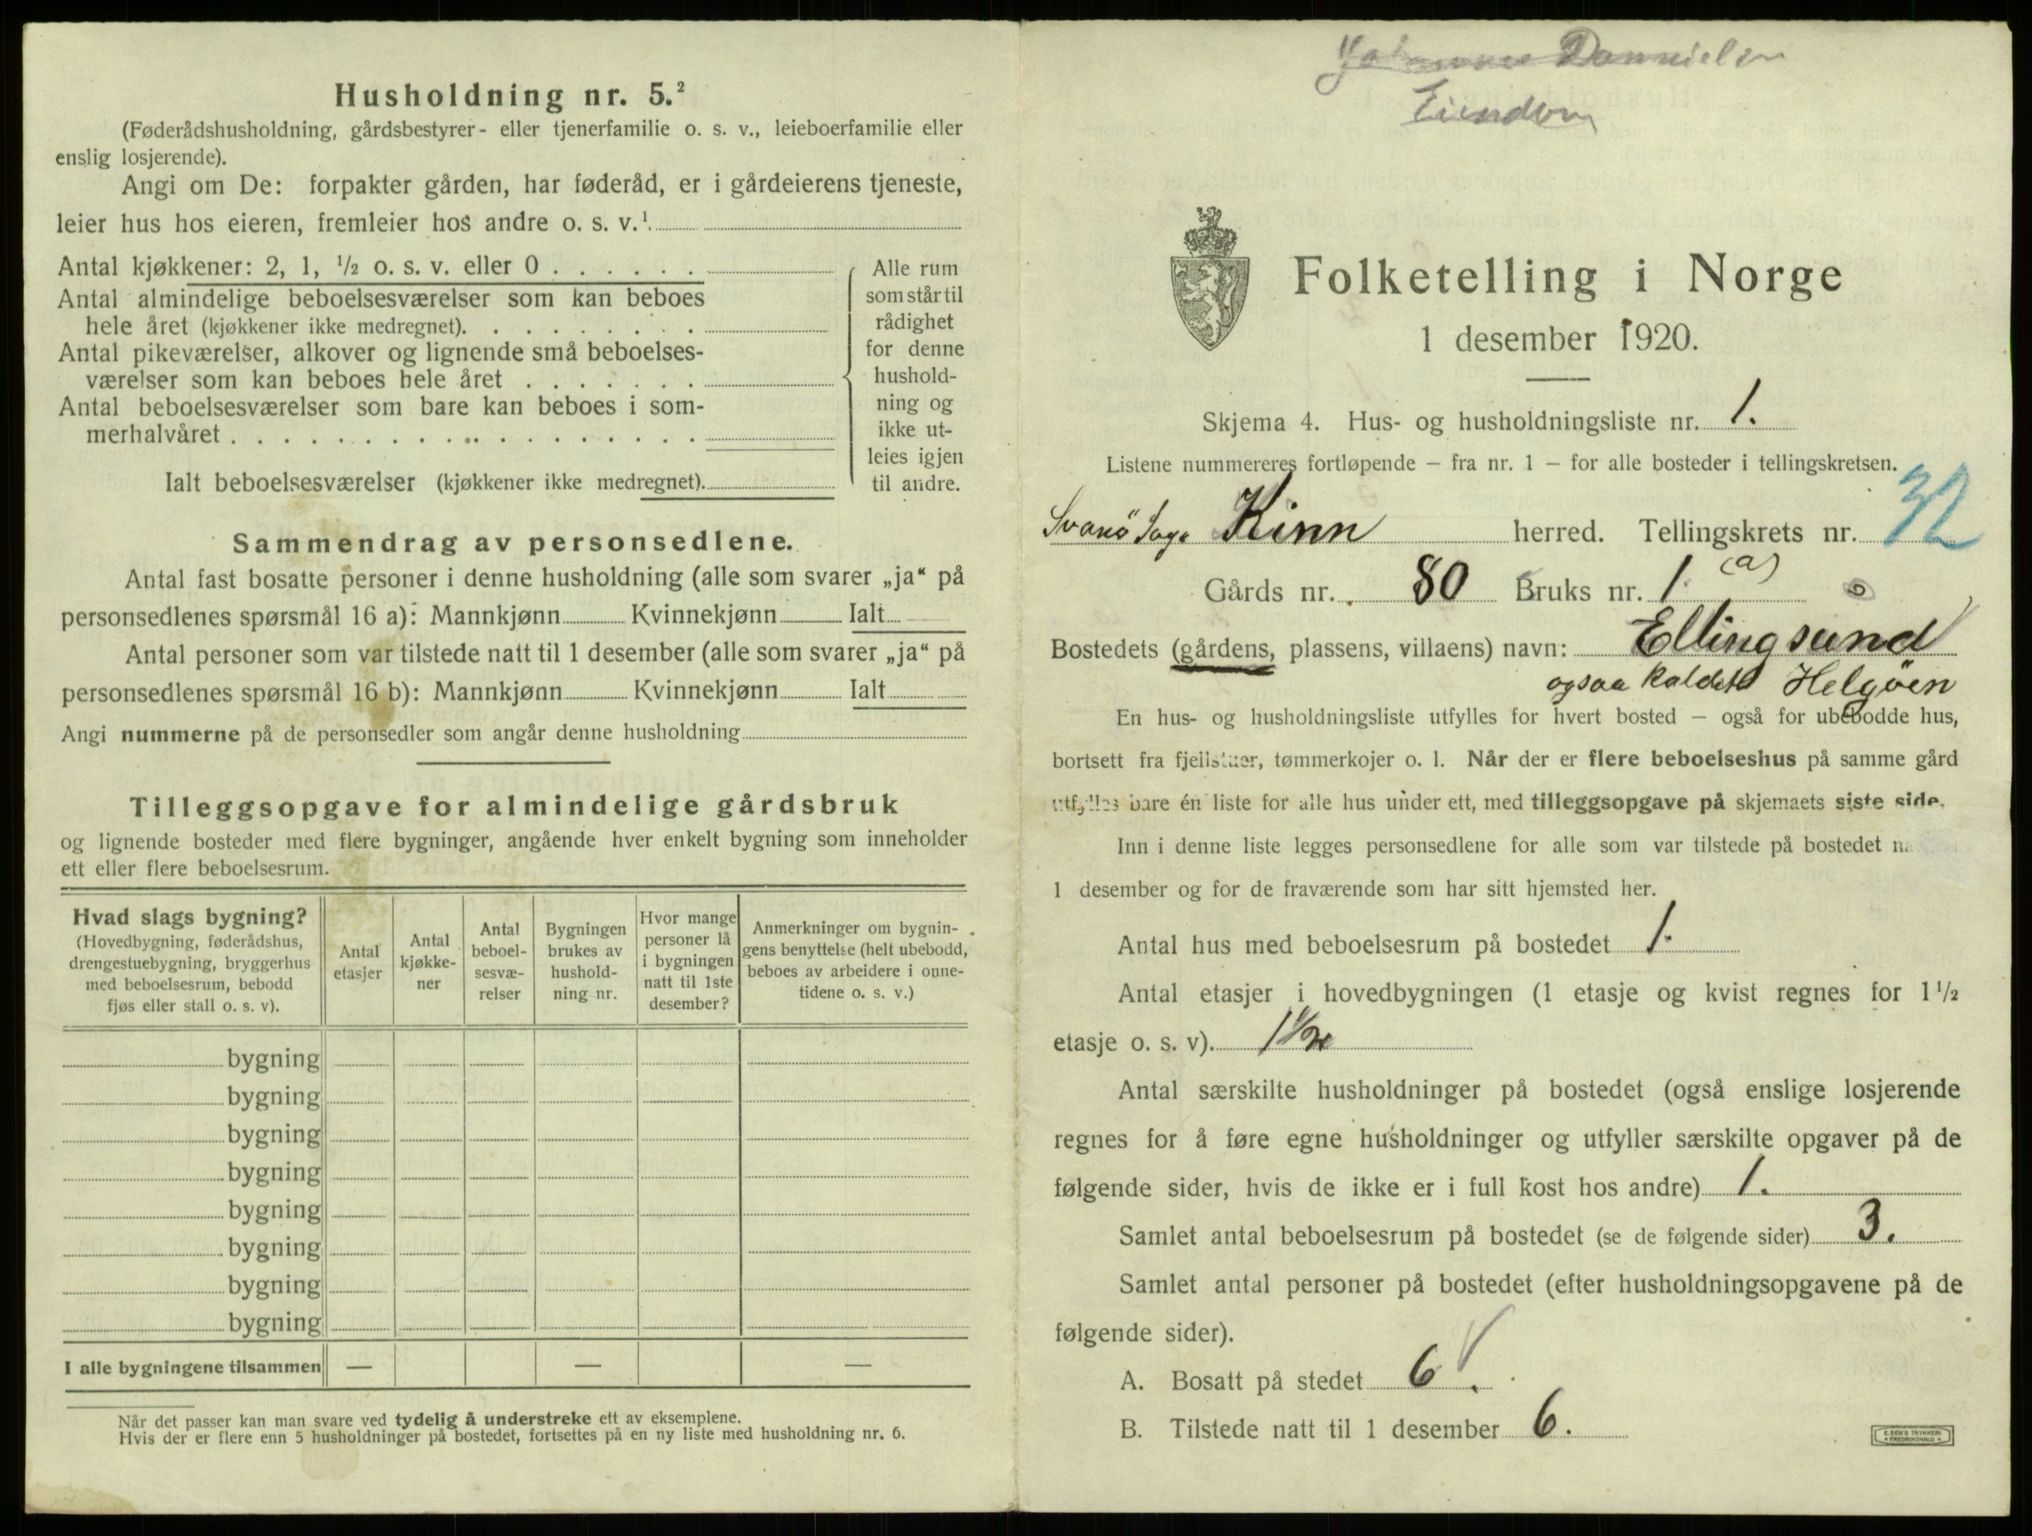 Husholdning nr. 5.²
(Føderådshusholdning, gårdsbestyrer- eller tjenerfamilie o. s. v., leieboerfamilie eller
enslig losjerende).
Angi om De: forpakter gården, har føderåd, er i gårdeierens tjeneste,
leier hus hos eieren, fremleier hos andre o. s. v.¹
Antal kjøkkener: 2, 1, ½ o. s. v. eller 0 . . . . . .
Antal almindelige beboelsesværelser som kan beboes
hele året (kjøkkener ikke medregnet). . . . . . . . .
Antal pikeværelser, alkover og lignende små beboelses-
værelser som kan beboes hele året . . . . . . .
Antal beboelsesværelser som bare kan beboes i som-
merhalvåret . . . . . . . . . . . . . . . . . .
Ialt beboelsesværelser (kjøkkener ikke medregnet).
Alle rum
som står til
rådighet
for denne
hushold-
ning og
ikke ut-
leies igjen
til andre.
Sammendrag av personsedlene.
Antal fast bosatte personer i denne husholdning (alle som svarer „ja“ på
personsedlenes spørsmål 16 a): Mannkjønn Kvinnekjønn Ialt
Antal personer som var tilstede natt til 1 desember (alle som svarer „ja“ på
personsedlenes spørsmål 16 b): Mannkjønn Kvinnekjønn Ialt
Angi nummerne på de personsedler som angår denne husholdning
Tilleggsopgave for almindelige gårdsbruk
og lignende bosteder med flere bygninger, angående hver enkelt bygning som inneholder
ett eller flere beboelsesrum.
Hvad slags bygning?
(Hovedbygning, føderådshus,
drengestuebygning, bryggerhus
med beboelsesrum, bebodd
fjøs eller stall o. s. v).
Antal
etasjer
Antal
kjøkke-
ner
Antal
beboel-
sesvæ-
relser
Bygningen
brukes av
hushold-
ning nr.
Hvor mange
personer lå
i bygningen
natt til 1ste
desember?
Anmerkninger om bygnin-
gens benyttelse (helt ubebodd,
beboes av arbeidere i onne-
tidene o. s. v.)
bygning
bygning
bygning
bygning
bygning
bygning
bygning
bygning
I alle bygningene tilsammen — — —
Når det passer kan man svare ved tydelig å understreke ett av eksemplene.
Hvis der er flere enn 5 husholdninger på bostedet, fortsettes på en ny liste med husholdning nr. 6.
Johannes Dannielsen
Folketelling i Norge
1 desember 1920.
Skjema 4. Hus- og husholdningsliste nr. 1.
Listene nummereres fortløpende – fra nr. 1 – for alle bosteder i tellingskretsen.
Svanö Sogn Kinn herred. Tellingskrets nr. 32
Gårds nr. 80 Bruks nr. 1. (a)
Bostedets (gårdens, plassens, villaens) navn: Ellingsund
ogsaa kaldet Helgöen
En hus- og husholdningsliste utfylles for hvert bosted – også for ubebodde hus,
bortsett fra fjellstuer, tømmerkojer o. l. Når der er flere beboelseshus på samme gård
utfylles bare én liste for alle hus under ett, med tilleggsopgave på skjemaets siste side.
Inn i denne liste legges personsedlene for alle som var tilstede på bostedet
1 desember og for de fraværende som har sitt hjemsted her.
Antal hus med beboelsesrum på bostedet 1.
Antal etasjer i hovedbygningen (1 etasje og kvist regnes for 1½
etasje o. s. v). 1½
Antal særskilte husholdninger på bostedet (også enslige losjerende
regnes for å føre egne husholdninger og utfyller særskilte opgaver på de
følgende sider, hvis de ikke er i full kost hos andre) 1.
Samlet antal beboelsesrum på bostedet (se de følgende sider) 3.
Samlet antal personer på bostedet (efter husholdningsopgavene på de
følgende sider).
A. Bosatt på stedet 6.
B. Tilstede natt til 1 desember 6.
E. SEM'S TRYKKERI
FREDRIKSHALD